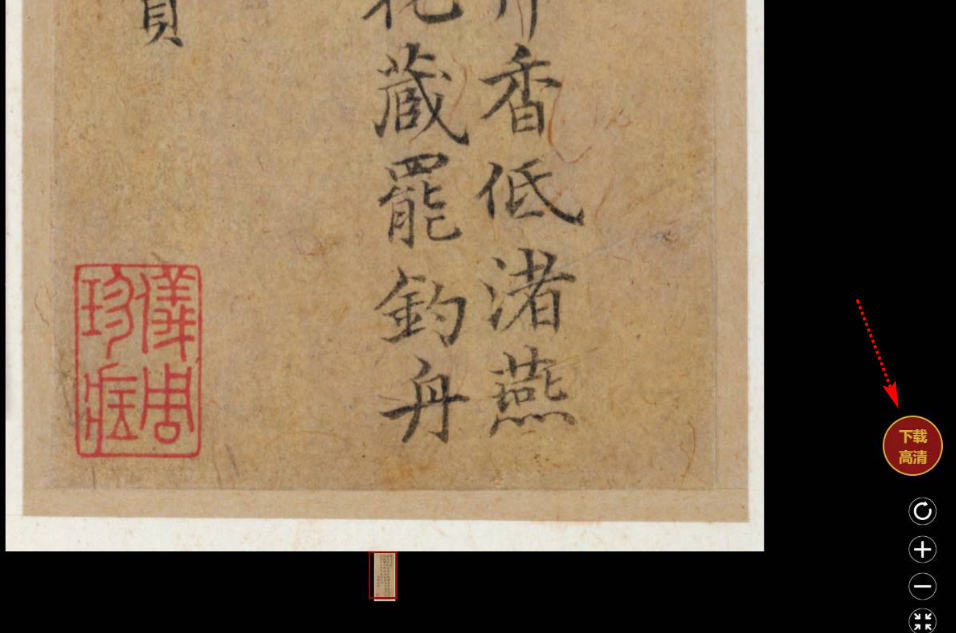 香低渚燕
藏罷釣舟
儀周
珍藏
下载
高清